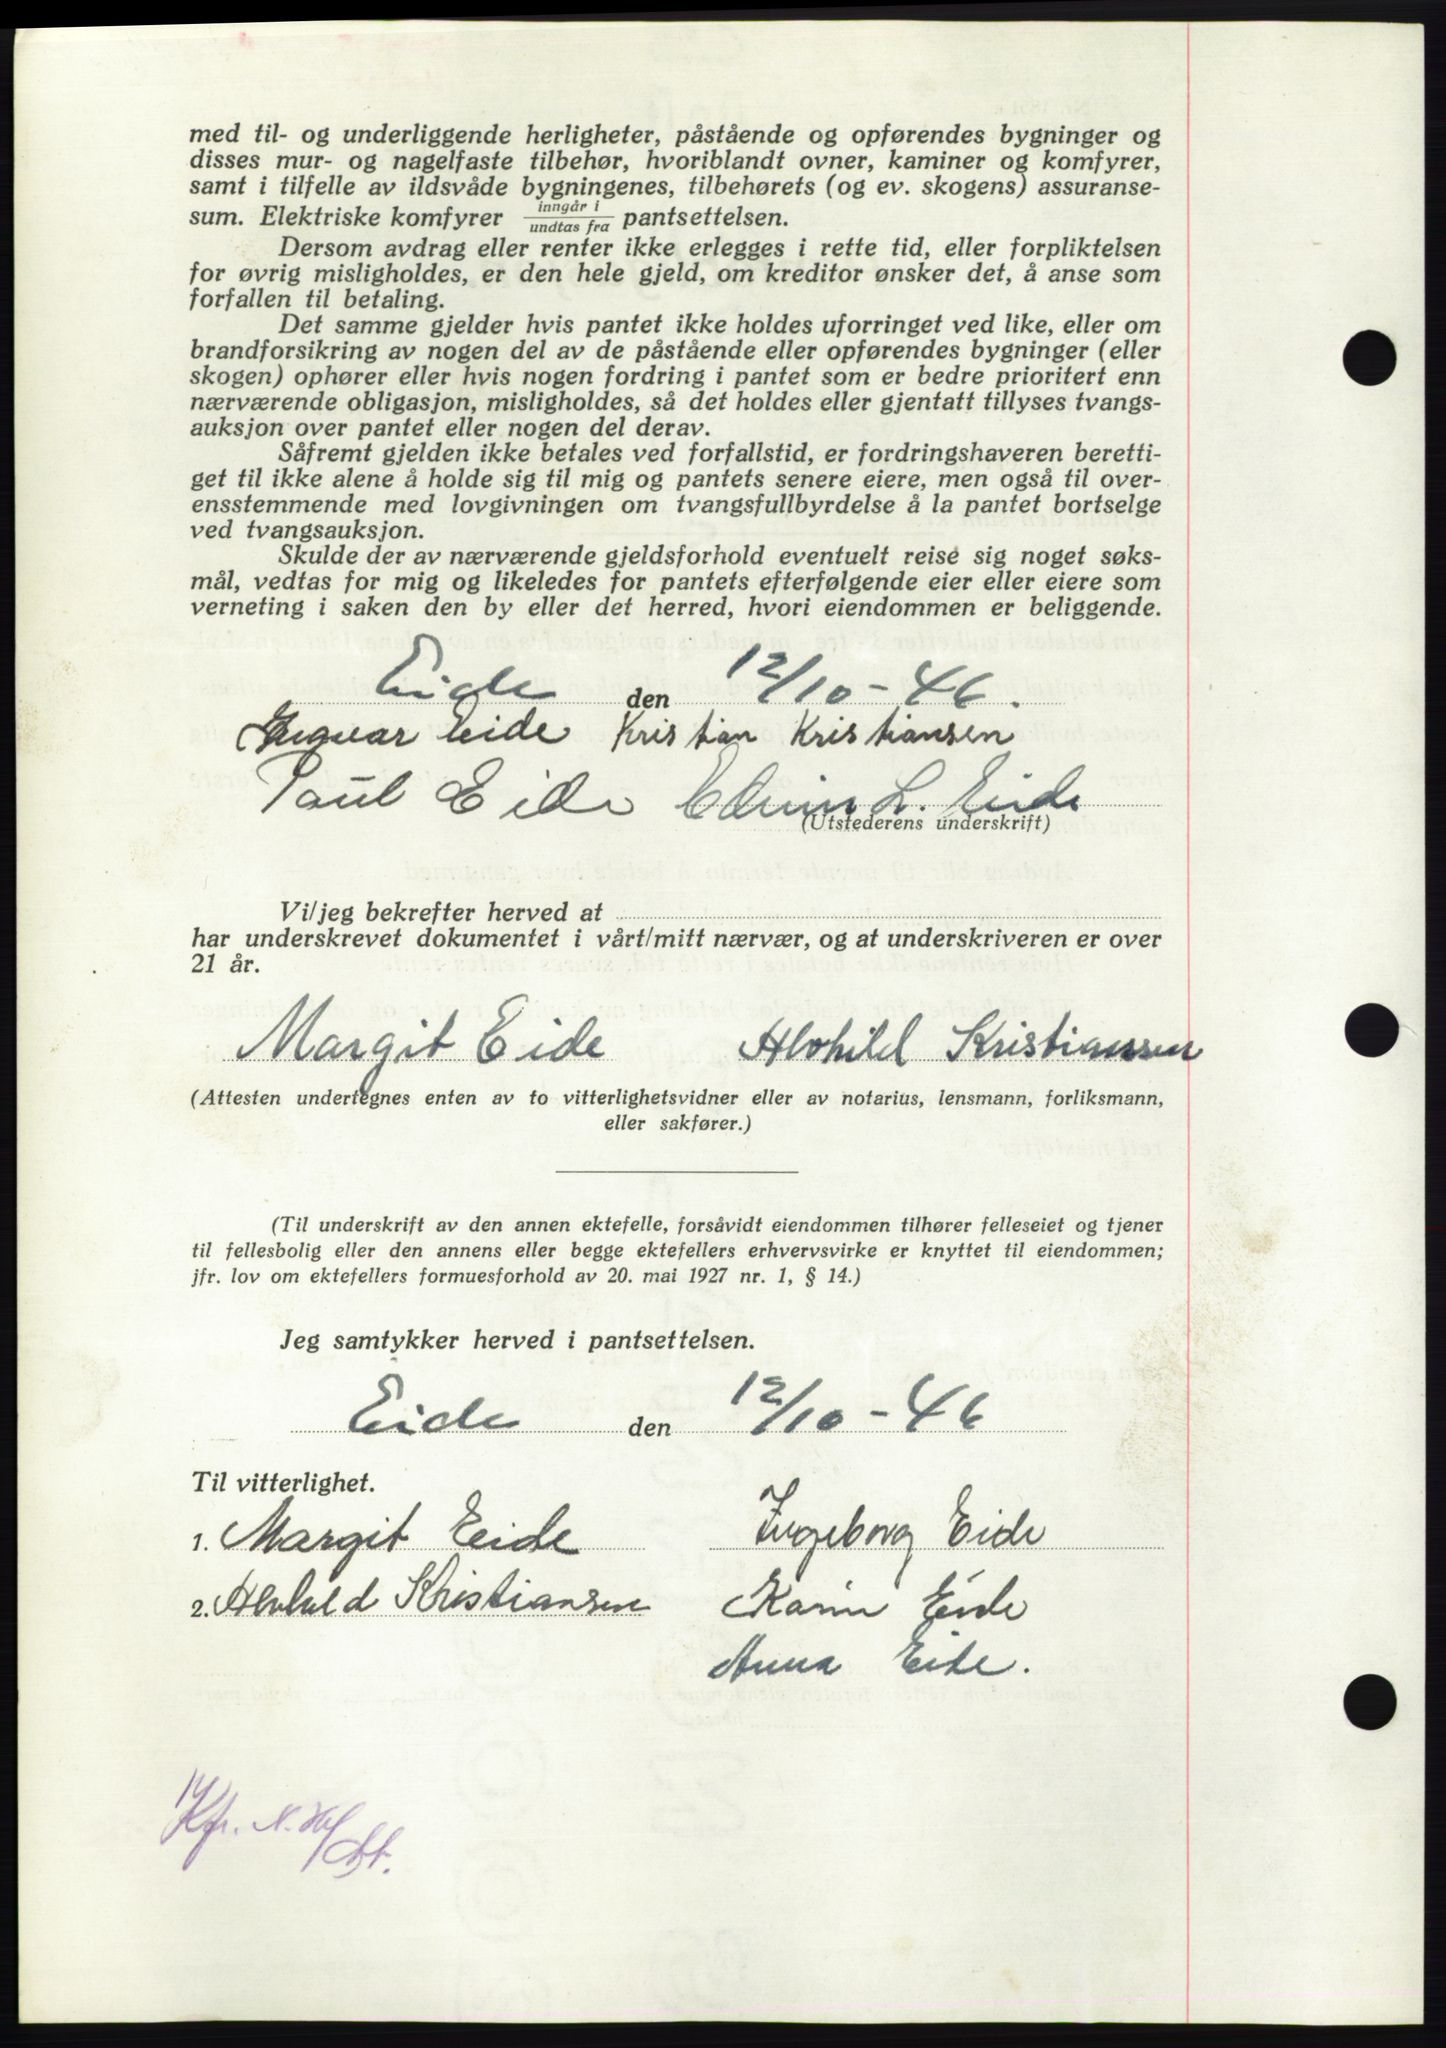 med til- og underliggende herligheter, påstående og opførendes bygninger og
disses mur- og nagelfaste tilbehør, hvoriblandt ovner, kaminer og komfyrer,
samt i tilfelle av ildsvåde bygningenes, tilbehørets (og ev. skogens) assuranse-
sum. Elektriske komfyrer inngår i / undtas fra pantsettelsen.
Dersom avdrag eller renter ikke erlegges i rette tid, eller forpliktelsen
for øvrig misligholdes, er den hele gjeld, om kreditor ønsker det, å anse som
forfallen til betaling.
Det samme gjelder hvis pantet ikke holdes uforringet ved like, eller om
brandforsikring av nogen del av de påstående eller opførendes bygninger (eller
skogen) ophører eller hvis nogen fordring i pantet som er bedre prioritert enn
nærværende obligasjon, misligholdes, så det holdes eller gjentatt tillyses tvangs-
auksjon over pantet eller nogen del derav.
Såfremt gjelden ikke betales ved forfallstid, er fordringshaveren beretti-
get til ikke alene å holde sig til mig og pantets senere eiere, men også til over-
ensstemmende med lovgivningen om tvangsfullbyrdelse å la pantet bortselge
ved tvangsauksjon.
Skulde der av nærværende gjeldsforhold eventuelt reise sig noget søks-
mål, vedtas for mig og likeledes for pantets efterfølgende eier eller eiere som
verneting i saken den by eller det herred, hvori eiendommen er beliggende.
Eide den 12/10-46.
Ingvar Eide Kristian Kristiansen
Paul Eide Edvin L. Eide
(Utstederens underskrift)
Vi/jeg bekrefter herved at
har underskrevet dokumentet i vårt/mitt nærvær, og at underskriveren er over
21 år.
Margit Eide Alvhild Kristianssen
(Attesten undertegnes enten av to vitterlighetsvidner eller av notarius, lensmann, forliksmann,
eller sakfører.)
(Til underskrift av den annen ektefelle, forsåvidt eiendommen tilhører felleseiet og tjener
til fellesbolig eller den annens eller begge ektefellers erhvervsvirke er knyttet til eiendommen;
jfr. lov om ektefellers formuesforhold av 20. mai 1927 nr. 1, § 14.)
Jeg samtykker herved i pantsettelsen.
Eide den 12/10-46
Til vitterlighet.
1. Margit Eide Ingeborg Eide
2. Alvhild Kristiansen Karin Eide
Anna Eide.